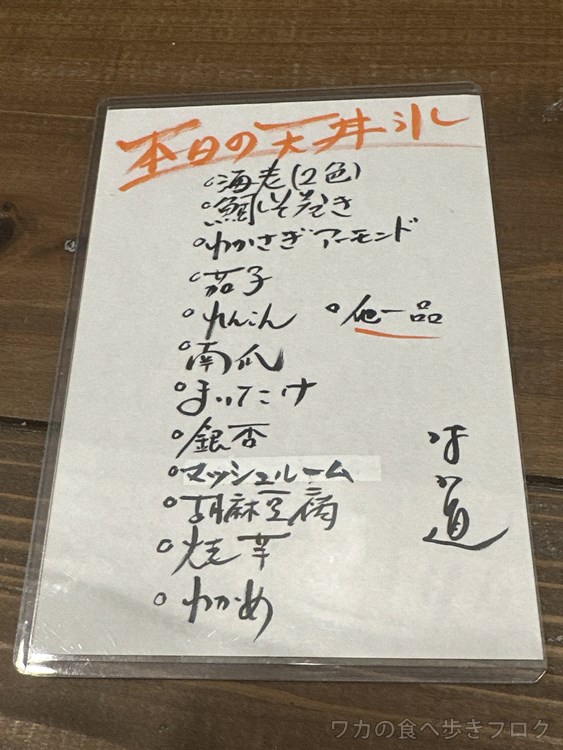 本日の天丼
○海老(2色)
○鯛しそ巻き
○わかさぎアーモンド
○茄子
○れんこん ○他一品
○南瓜
○まいたけ
○銀杏
○マッシュルーム
○胡麻豆腐
○焼芋
○わかめ
道
ワカの食べ歩きブログ